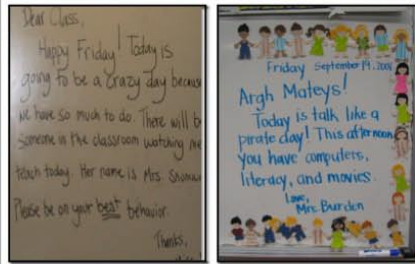 Dear Class,
Happy Friday! Today is
going to be a crazy day because
we have so much to do. There will b
someone in the classroom watching me
teach today. Her name is Mrs.
Please be on your best behavior.
Thanks,
Friday September 19, 200
Argh Mateys!
Today is talk like a
pirate day! This afternoon
you have computers,
literacy, and movies.
Love,
Mrs. Burden